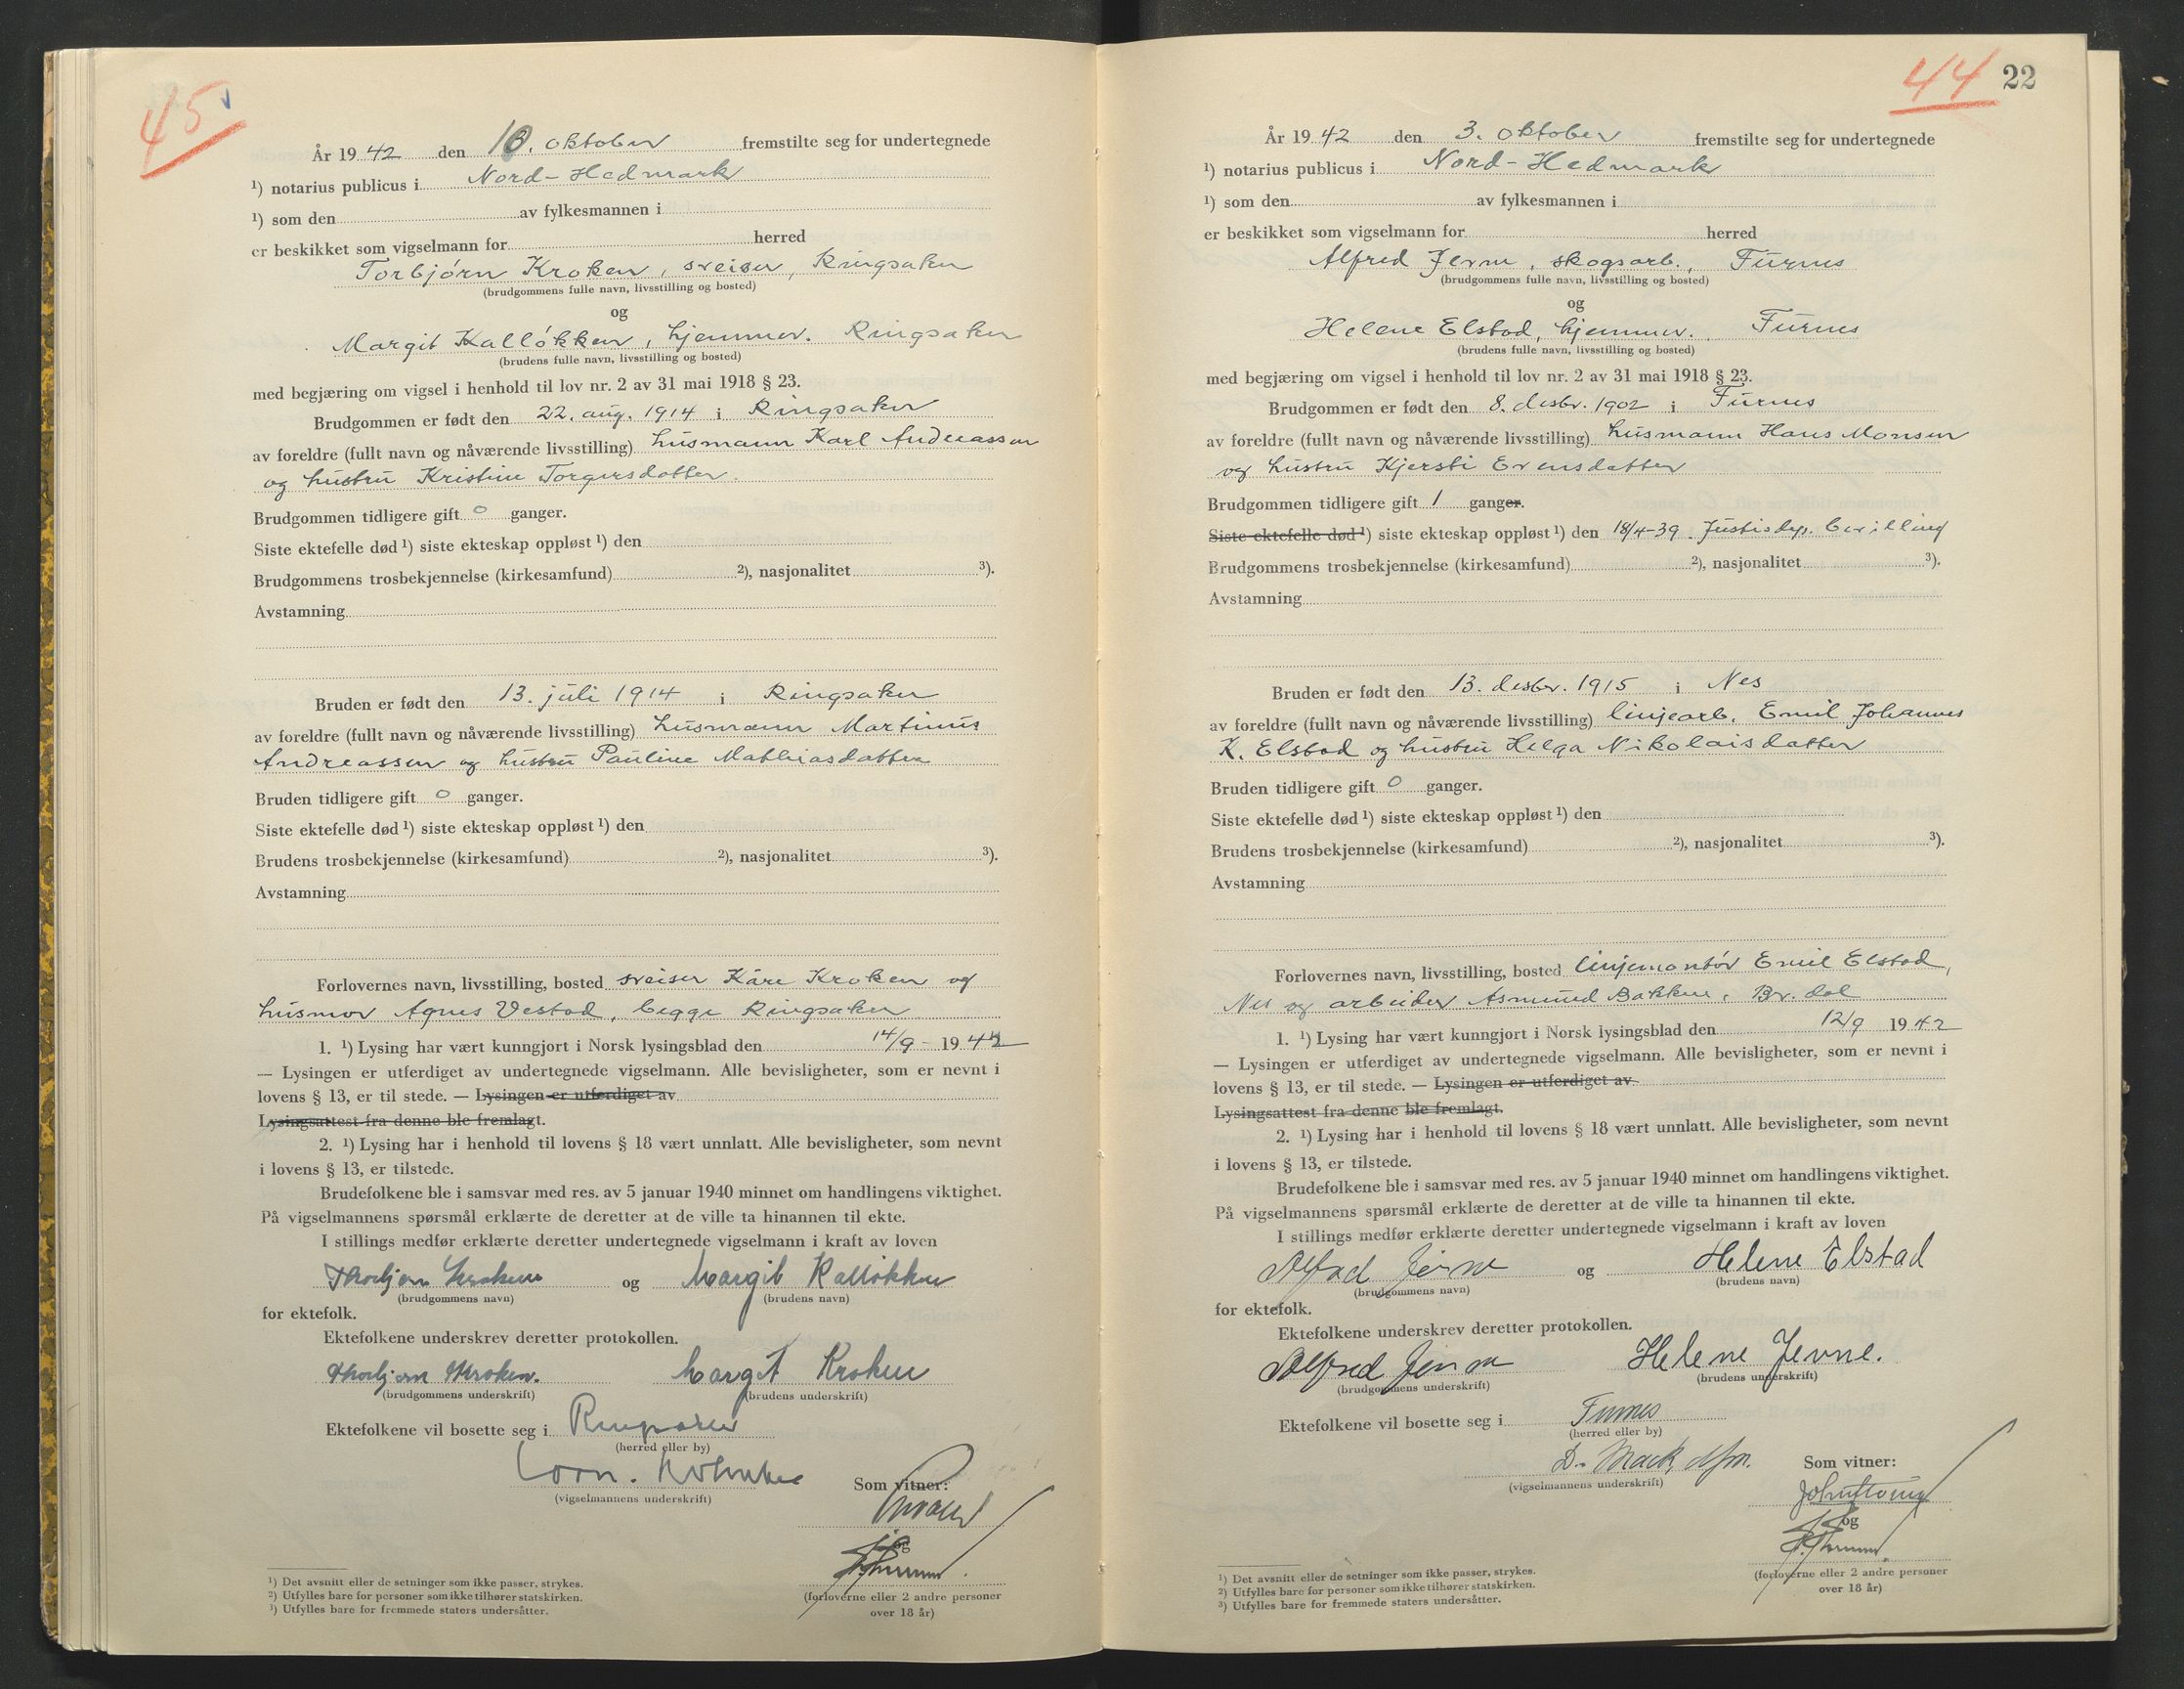 45
År 1942 den 10. oktober fremstilte seg for undertegnede
¹) notarius publicus i Nord-Hedmark
¹) som den av fylkesmannen i
er beskikket som vigselmann for herred
Torbjørn Kroken, sveiser, Ringsaker
(brudgommens fulle navn, livsstilling og bosted)
og
Margit Kalløkken, hjemmev. Ringsaker
(brudens fulle navn, livsstilling og bosted)
med begjæring om vigsel i henhold til lov nr. 2 av 31 mai 1918 § 23.
Brudgommen er født den 22. aug. 1914 i Ringsaker
av foreldre (fullt navn og nåværende livsstilling) husmann Karl Andreassen
og hustru Kristine Torgersdatter.
Brudgommen tidligere gift 0 ganger.
Siste ektefelle død ¹) siste ekteskap oppløst ¹) den
Brudgommens trosbekjennelse (kirkesamfund) ²), nasjonalitet ³).
Avstamning
Bruden er født den 13. juli 1914 i Ringsaker
av foreldre (fullt navn og nåværende livsstilling) husmann Martinus
Andreassen og hustru Pauline Mathiasdatter
Bruden tidligere gift 0 ganger.
Siste ektefelle død ¹) siste ekteskap oppløst ¹) den
Brudens trosbekjennelse (kirkesamfund) ²), nasjonalitet ³).
Avstamning
Forlovernes navn, livsstilling, bosted sveiser Kåre Kroken og
husmor Agnes Vestad, begge Ringsaker
1. ¹) Lysing har vært kunngjort i Norsk lysingsblad den 14/9 - 1942
— Lysingen er utferdiget av undertegnede vigselmann. Alle bevisligheter, som er nevnt i
lovens § 13, er til stede. — Lysingen er utferdiget av
Lysingsattest fra denne ble fremlagt.
2. ¹) Lysing har i henhold til lovens § 18 vært unnlatt. Alle bevisligheter, som nevnt
i lovens § 13, er tilstede.
Brudefolkene ble i samsvar med res. av 5 januar 1940 minnet om handlingens viktighet.
På vigselmannens spørsmål erklærte de deretter at de ville ta hinannen til ekte.
I stillings medfør erklærte deretter undertegnede vigselmann i kraft av loven
Thorbjørn Kroken og Margit Kalløkken
(brudgommens navn) (brudens navn)
for ektefolk.
Ektefolkene underskrev deretter protokollen.
Thorbjørn Kroken. Margit Kroken
(brudgommens underskrift) (brudens underskrift)
Ektefolkene vil bosette seg i Ringsaker
(herred eller by)
Som vitner:
(vigselmannens underskrift)
og
(forloverne eller 2 andre personer
over 18 år)
¹) Det avsnitt eller de setninger som ikke passer, strykes.
²) Utfylles bare for personer som ikke tilhører statskirken.
³) Utfylles bare for fremmede staters undersåtter.
44 22
År 1942 den 3. oktober fremstilte seg for undertegnede
¹) notarius publicus i Nord-Hedmark
¹) som den av fylkesmannen i
er beskikket som vigselmann for herred
Alfred Jevne, skogsarb., Furnes
(brudgommens fulle navn, livsstilling og bosted)
og
Helene Elstad, hjemmev., Furnes
(brudens fulle navn, livsstilling og bosted)
med begjæring om vigsel i henhold til lov nr. 2 av 31 mai 1918 § 23.
Brudgommen er født den 8. desbr. 1902 i Furnes
av foreldre (fullt navn og nåværende livsstilling) husmann Hans Monsen
og hustru Kjersti Evensdatter
Brudgommen tidligere gift 1 ganger.
Siste ektefelle død ¹) siste ekteskap oppløst ¹) den 18/4-39. Justisdep. bevilling
Brudgommens trosbekjennelse (kirkesamfund) ²), nasjonalitet ³).
Avstamning
Bruden er født den 13. desbr. 1915 i Nes
av foreldre (fullt navn og nåværende livsstilling) linjearb. Emil Johannes
K. Elstad og hustru Helga Nikolaisdatter
Bruden tidligere gift 0 ganger.
Siste ektefelle død ¹) siste ekteskap oppløst ¹) den
Brudens trosbekjennelse (kirkesamfund) ²), nasjonalitet ³).
Avstamning
Forlovernes navn, livsstilling, bosted linjemontør Emil Elstad,
Nes og arbeider Asmund Bakken, Br.dal
1. ¹) Lysing har vært kunngjort i Norsk lysingsblad den 12/9 1942
— Lysingen er utferdiget av undertegnede vigselmann. Alle bevisligheter, som er nevnt i
lovens § 13, er til stede. — Lysingen er utferdiget av
Lysingsattest fra denne ble fremlagt.
2. ¹) Lysing har i henhold til lovens § 18 vært unnlatt. Alle bevisligheter, som nevnt
i lovens § 13, er tilstede.
Brudefolkene ble i samsvar med res. av 5 januar 1940 minnet om handlingens viktighet.
På vigselmannens spørsmål erklærte de deretter at de ville ta hinannen til ekte.
I stillings medfør erklærte deretter undertegnede vigselmann i kraft av loven
Alfred Jevne og Helene Elstad
(brudgommens navn) (brudens navn)
for ektefolk.
Ektefolkene underskrev deretter protokollen.
Alfred Jevne Helene Jevne.
(brudgommens underskrift) (brudens underskrift)
Ektefolkene vil bosette seg i Furnes
(herred eller by)
D. Mack, Som vitner:
(vigselmannens underskrift)
og
(forloverne eller 2 andre personer
over 18 år)
¹) Det avsnitt eller de setninger som ikke passer, strykes.
²) Utfylles bare for personer som ikke tilhører statskirken.
³) Utfylles bare for fremmede staters undersåtter.